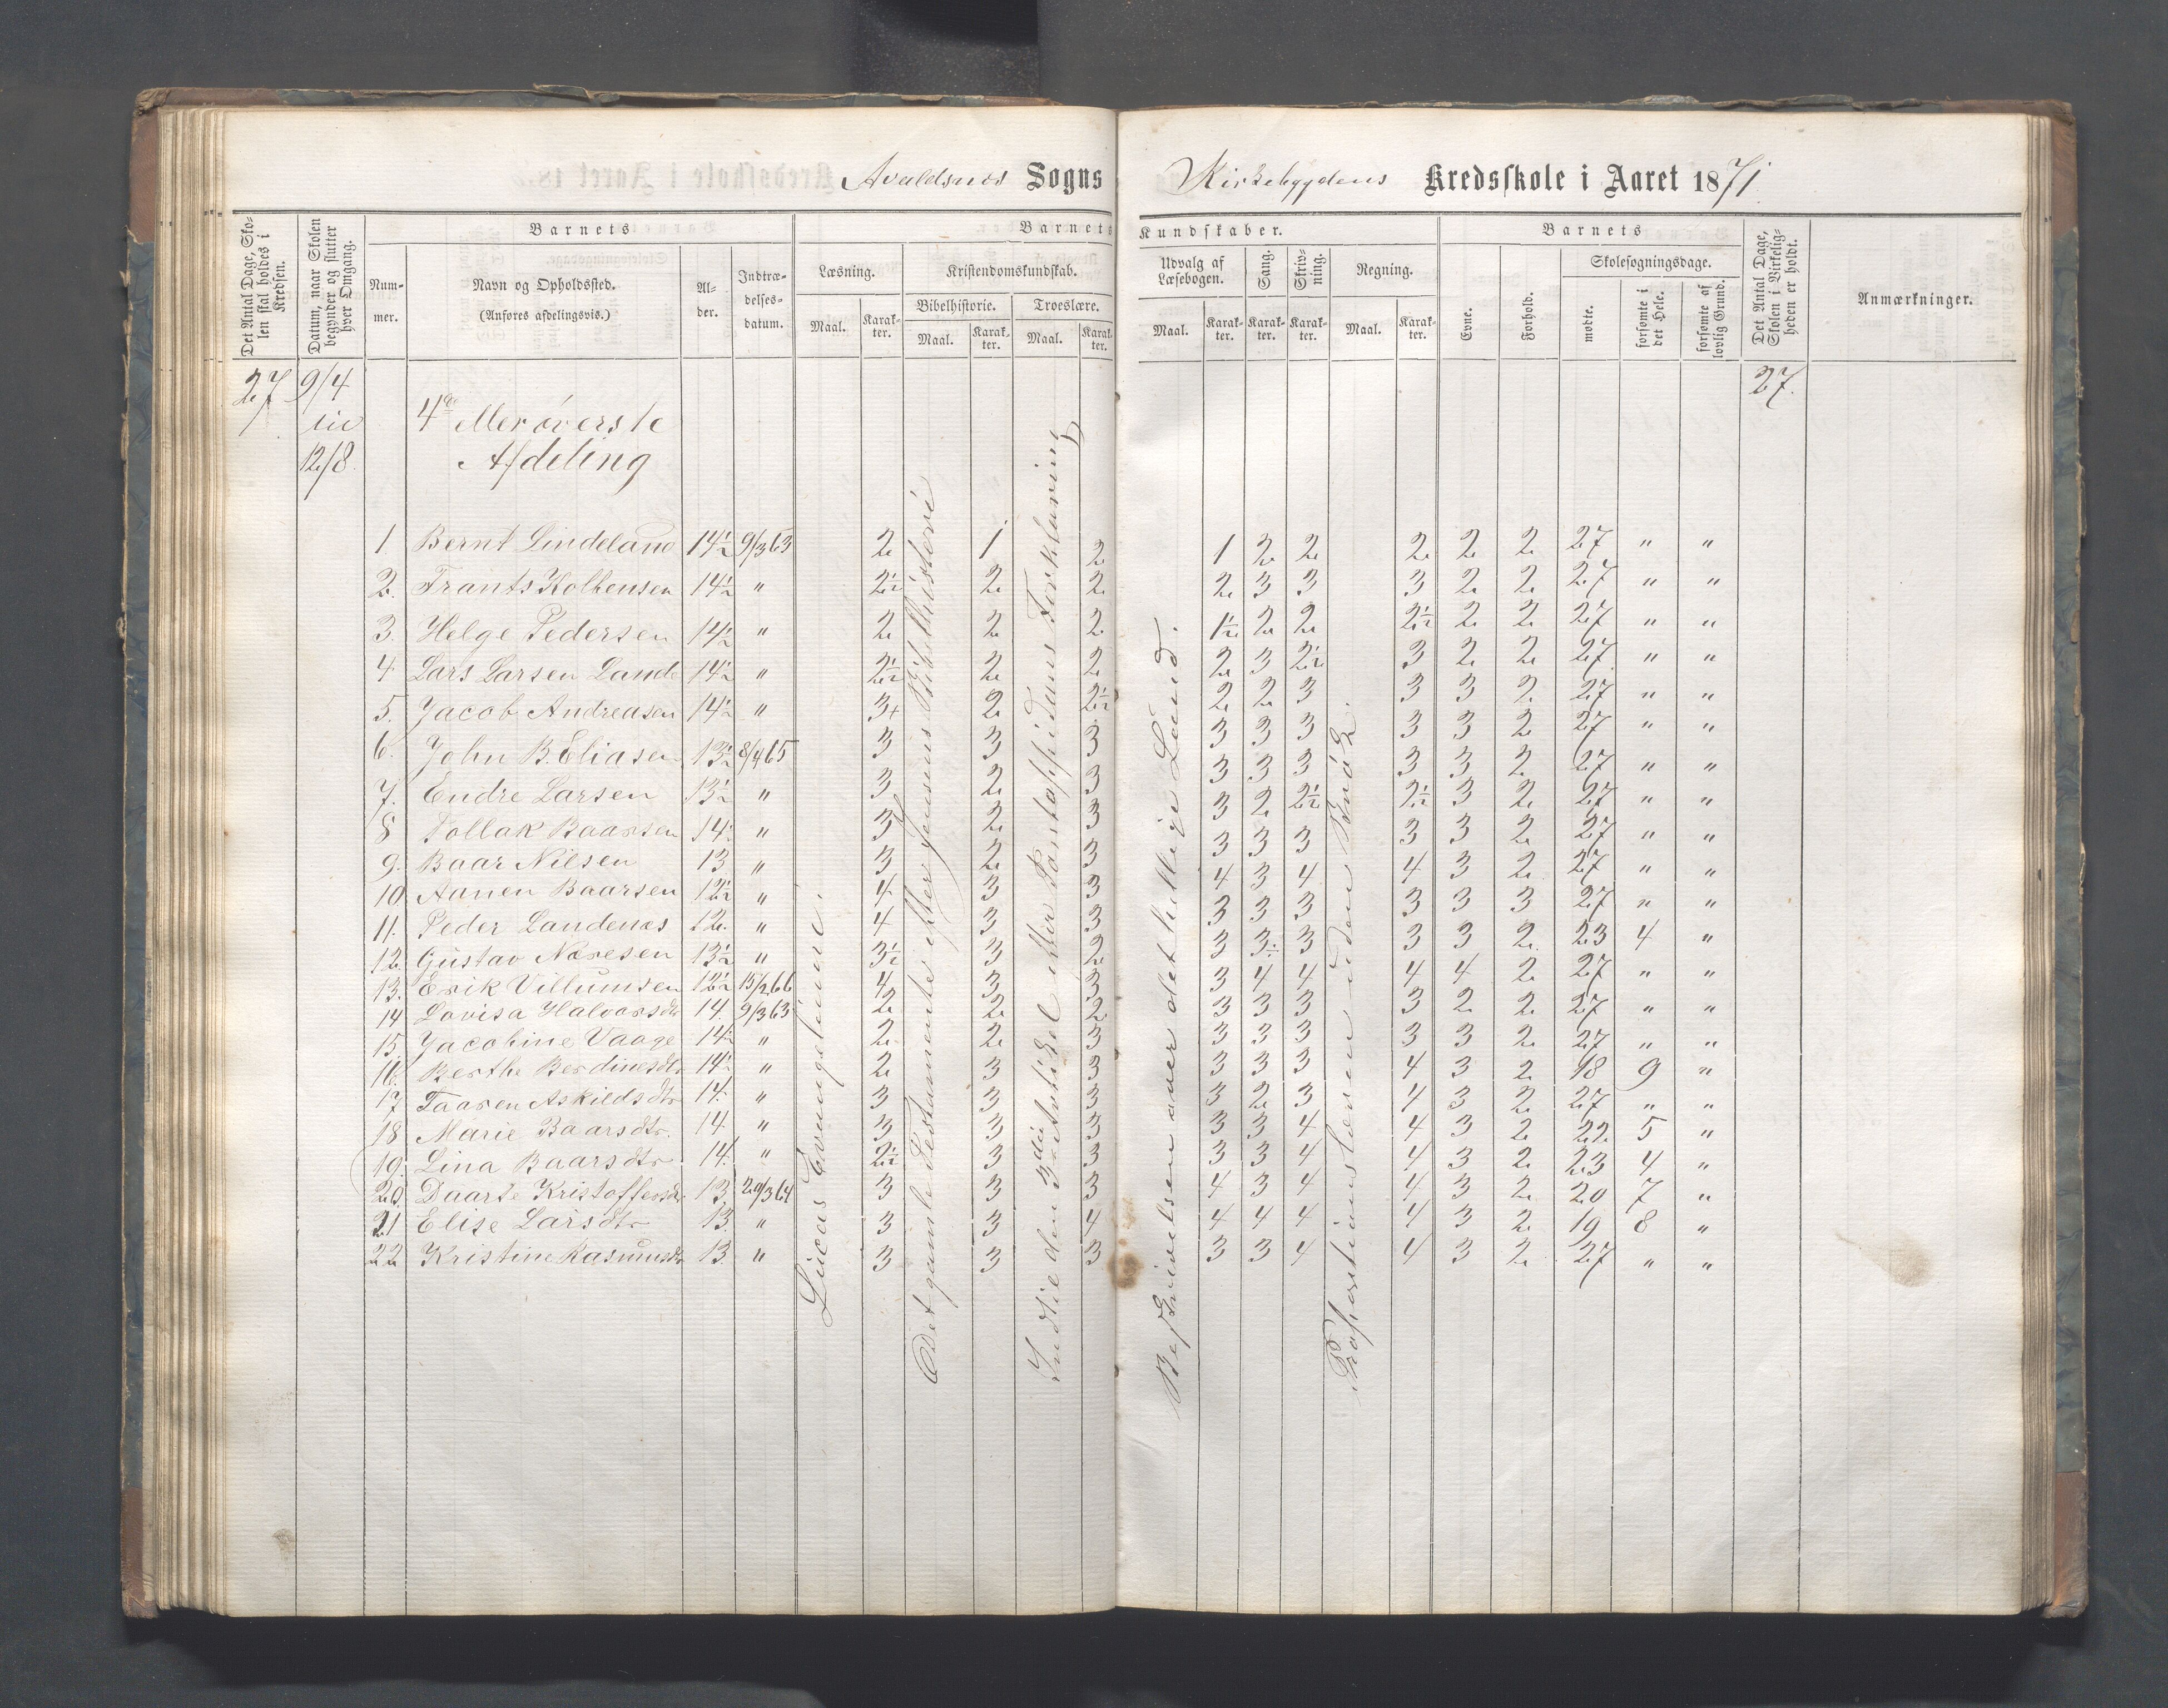 Avaldsnes Sogns Kirkebygdens Kredsskole i Aaret 1871.
Det Antal Dage, Skolen skal holdes i Kredsen.
Datum, naar Skolen begynder og slutter hver Omgang.
Barnets
Nummer.
Navn og Opholdssted.
(Anføres afdelingsvis.)
Alder.
Indtrædelsesdatum.
Barnets Kundskaber.
Læsning.
Maal.
Karakter.
Kristendomskundskab.
Bibelhistorie.
Maal.
Karakter.
Troeslære.
Maal.
Karakter.
Udvalg af Læsebogen.
Maal.
Karakter.
Sang.
Karakter.
Skrivning.
Karakter.
Regning.
Maal.
Karakter.
Barnets
Evne.
Forhold.
Skolesøgningsdage.
mødte.
forsømte i det Hele.
forsømte af lovlig Grund.
Det Antal Dage, Skolen i Virkeligheden er holdt.
Anmærkninger.
27 9/4 27.
til
12/8.
4de Allerøverste
Afdeling
1 Bernt Lindeland 14½ 9/3 63 2 1 2 1 2 2 2 2 2 27 " "
2. Frants Kolbensen 14½ " 2½ 2 2 2 3 3 3 2 2 27 " "
3. Helge Pedersen 14½ " 2 2 2 1½ 2 2 2½ 2 2 27 " "
4 Lars Larsen Lande 14½ " 2½ 2 2 2 3 2½ 3 2 2 27 " "
5. Jacob Andreasen 14½ " 3+ 2 2½ 2 2 3 3 3 2 27 " "
6. John B. Eliasen 13½ 8/4 65 3 3 3 3 3 3 3 3 2 27 " "
7. Endre Larsen 13½ " 3 2 3 3 3 3 3 3 2 27 " "
8 Tollak Baarsen 14½ " 3 2 3 3 2 2½ 2½ 3 2 27 " "
9. Baar Nilsen 13 " 3 2 3 3 3 3 3 3 2 27 " "
10. Aanen Baarsen 12½ " 4 3 3 4 3 4 4 3 2 27 " "
11. Peder Landenes 12. " 4 3 3 3 3 3 3 3 3 27 " "
12. Gustav Naresen 13½ " 3½ 3 2 3 3 3 3 3 2 23 4 "
13. Erik Villumsen 12½ 15/2 66 4 3 3 3 4 4 4 4 2 27 " "
14 Lovisa Halvorsdtr 14. 9/3 63 2 2 2 3 3 3 3 2 2 27 " "
15. Jacobine Vaage 14½ " 2 2 3 3 3 3 3 3 2 27 " "
16. Berthe Berdinesdtr 14½ " 2 3 3 3 3 3 4 3 2 18 9 "
17 Taaren Askildsdtr 14. " 3 3 3 3 2 3 4 3 2 27 " "
18 Marie Baarsdtr. 14. " 3 3 3 3 3 4 4 3 2 22 5 "
19. Lina Baarsdtr 14. " 2½ 3 3 3 3 4 4 3 2 23 4 "
20. Daarte Kristoffersdtr 13. 29/3 64 3 3 3 4 3 4 4 3 2 20 7 "
21 Elise Larsdtr 13. " 3 3 4 4 4 4 4 3 2 19 8 "
22 Kristine Rasmusdtr 13. " 3 3 3 3 3 4 4 3 2 27 " "
Lucas Evangelium.
Det gamle Testamente efter Jensens Bibelhistorie
Indtil den 3die Artikel efter Pontoppidans Forklaring
Beskrivelsen over det hellige Land.
Proportionslæren uden Brøk.